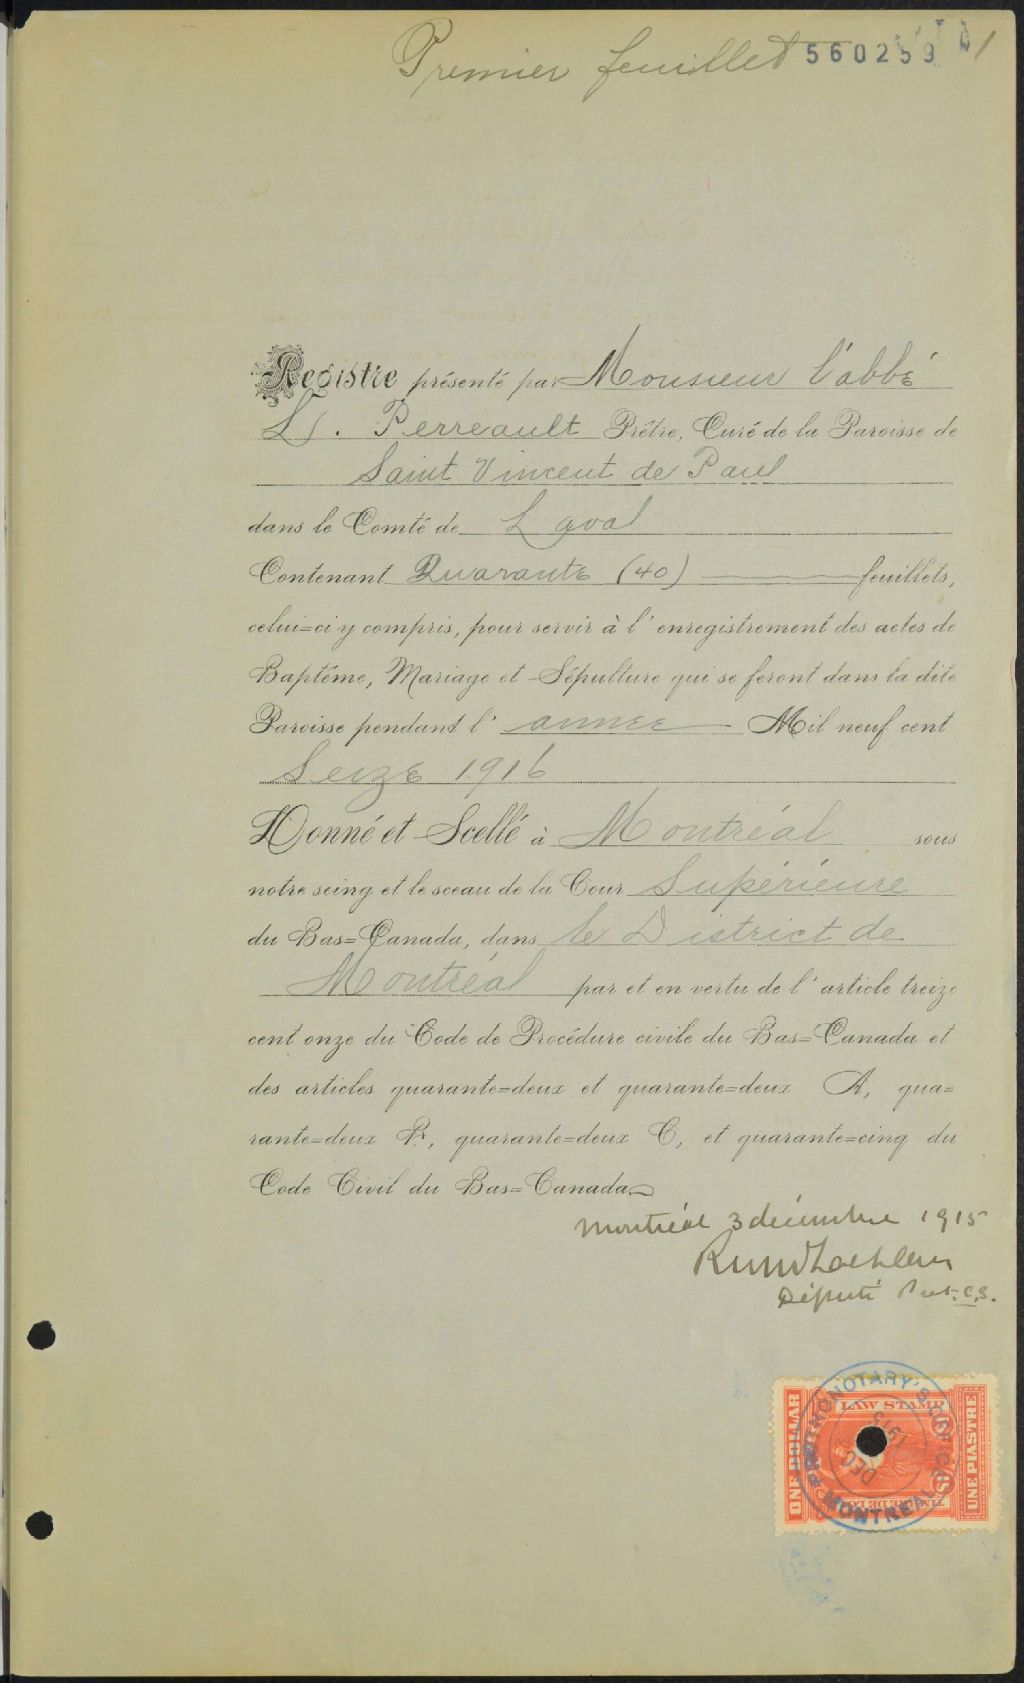 Premier feuillet 560259 1
Registre présenté par Monsieur l'abbé
Perreault Prêtre, Curé de la Paroisse de
Saint Vincent de Paul
dans le Comté de Laval
Contenant Quarante (40) feuillets,
celui=ci y compris, pour servir à l'enregistrement des actes de
Baptême, Mariage et Sépulture qui se feront dans la dite
Paroisse pendant l' année Mil neuf cent
Seize 1916
Donné et Scellé à Montréal sous
notre seing et le sceau de la Cour Supérieure
du Bas=Canada, dans le District de
Montréal par et en vertu de l'article treize
cent onze du Code de Procédure civile du Bas=Canada et
des articles quarante=deux et quarante=deux A, qua=
rante=deux B, quarante=deux C, et quarante=cinq du
Code Civil du Bas=Canada
Montréal 3 décembre 1915
Député C.S.
PROTHONOTARY'S OFFICE
LAW STAMP
ONE DOLLAR
UNE PIASTRE
DEC
MONTREAL